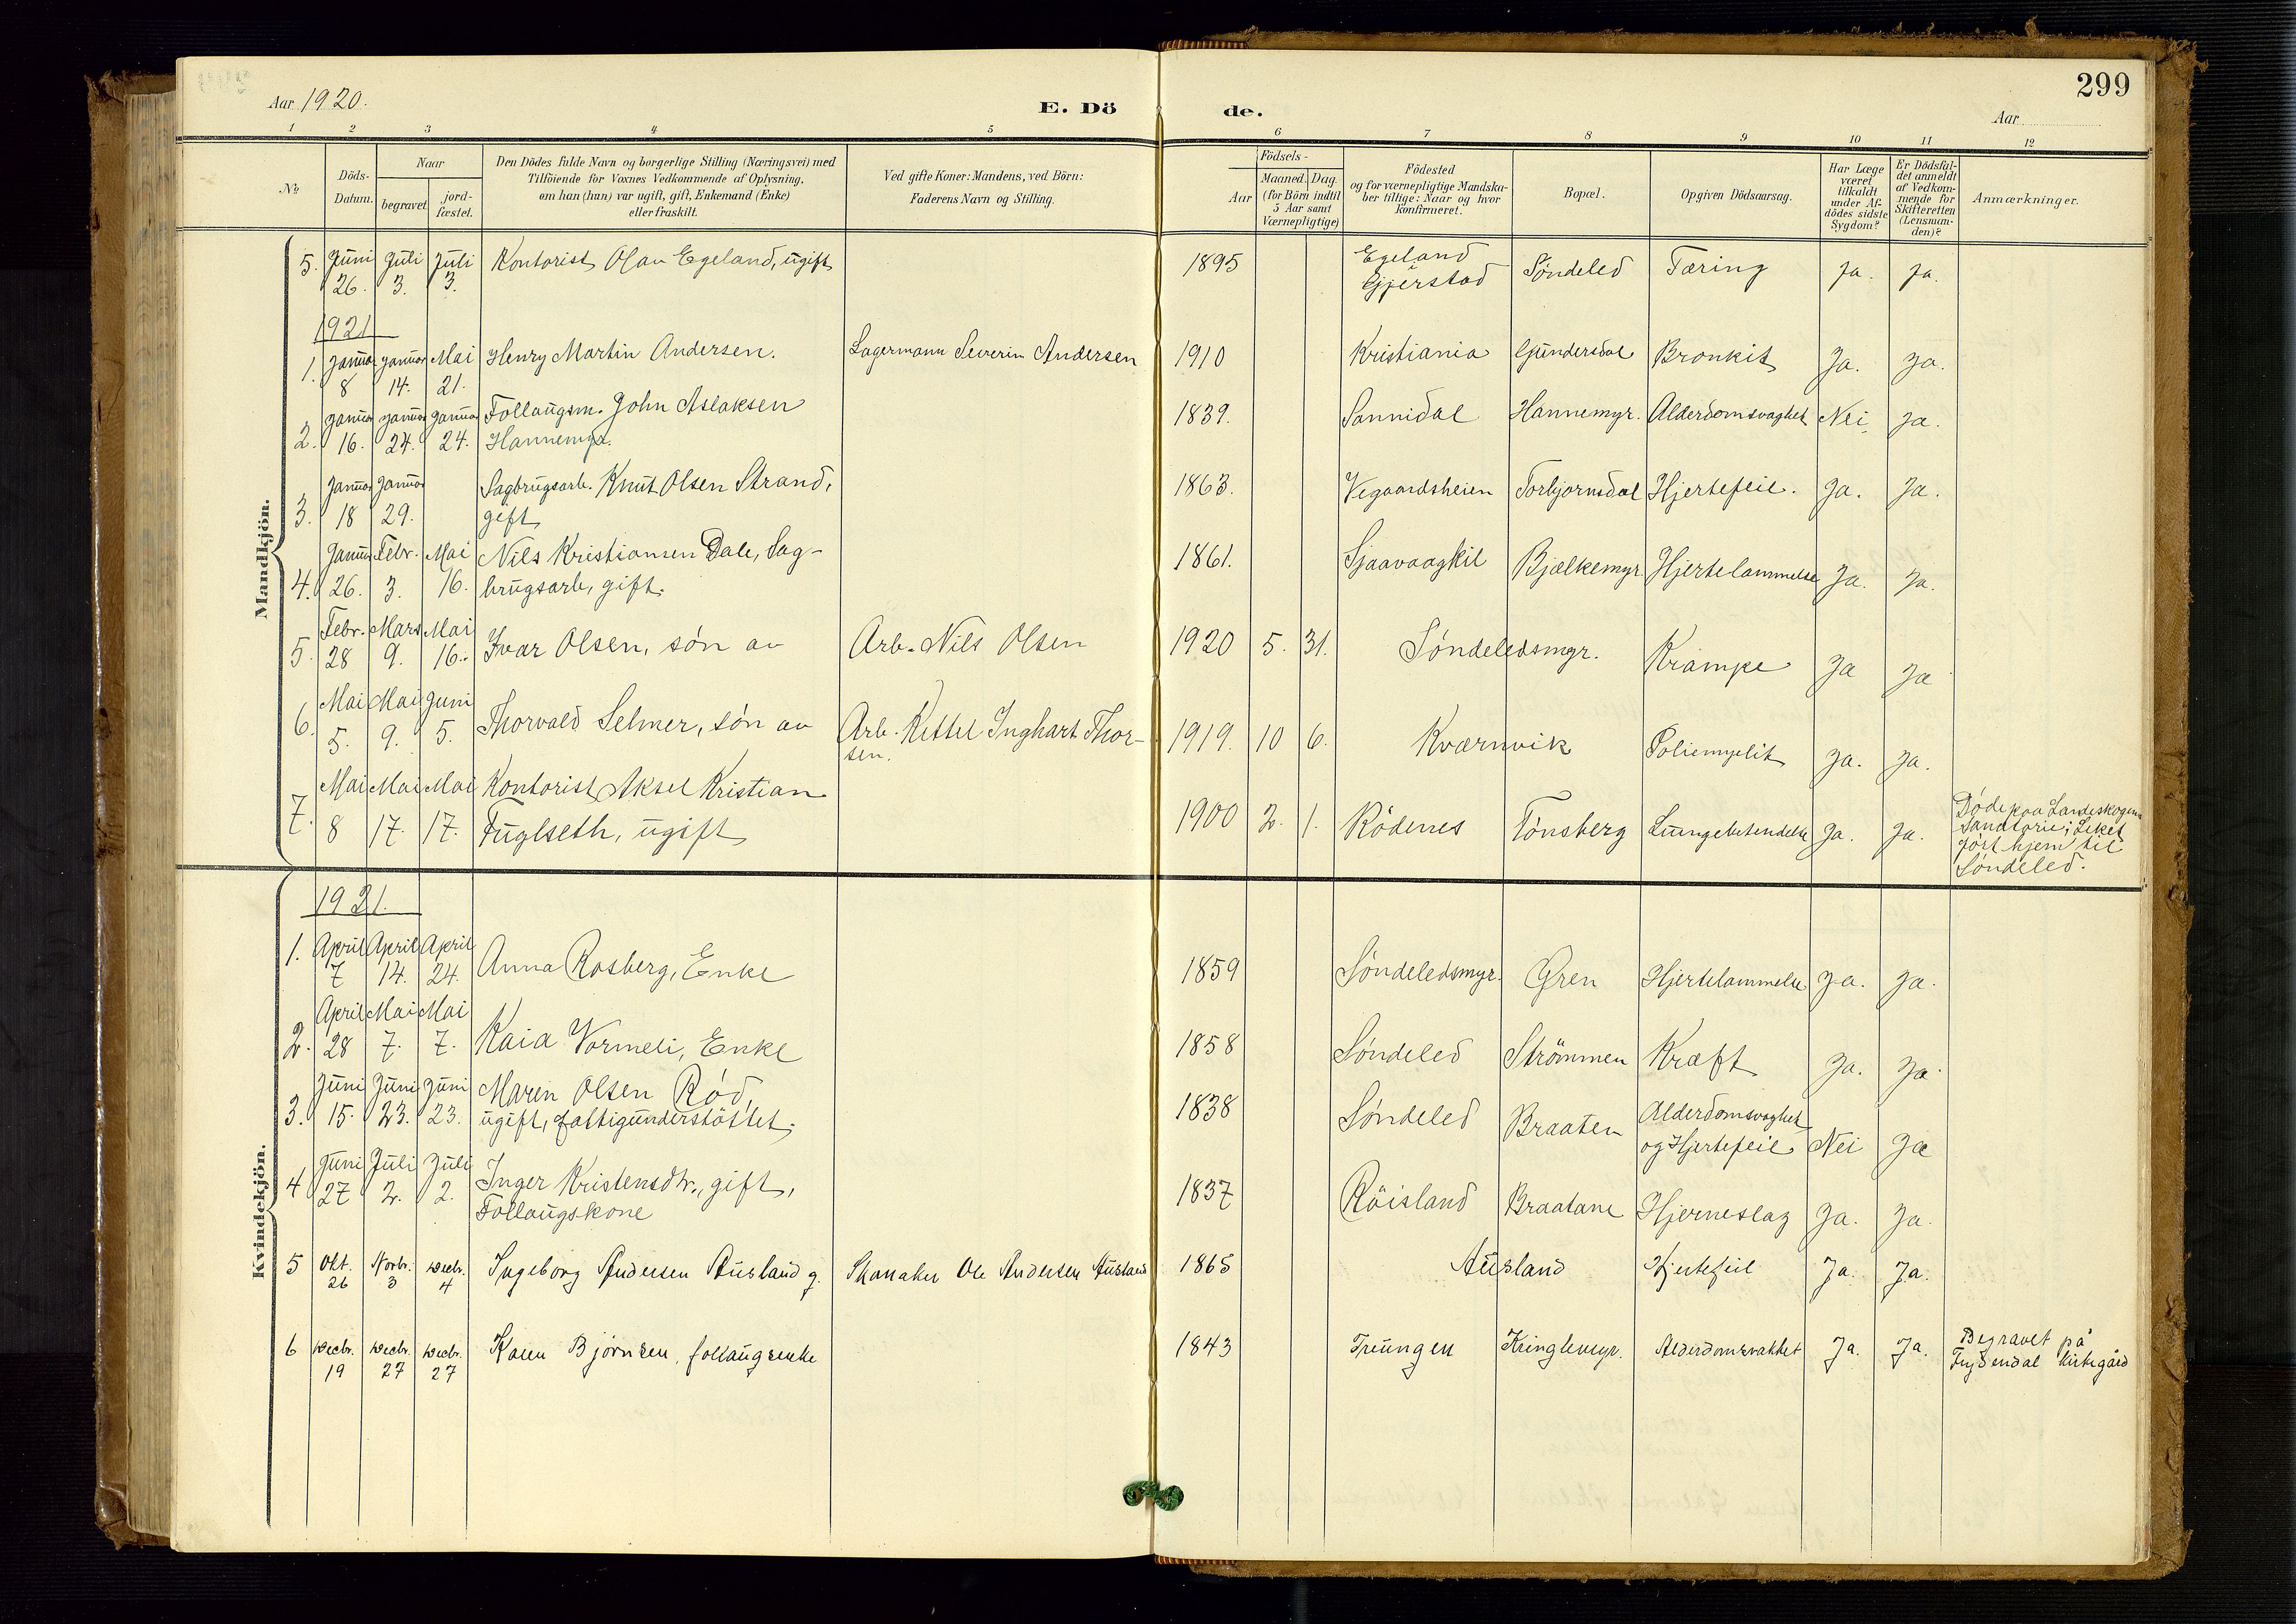 299
Aar 1920.
E. Dö
de.
Aar
1 2 3 4 5 6 7 8 9 10 11 12
No
Döds-Datum.
Naar
begravet.
jord-fæstet.
Den Dödes fulde Navn og borgerlige Stilling (Næringsvei) med
Tilföiende for Voxnes Vedkommende af Oplysning,
om han (hun) var ugift, gift, Enkemand (Enke)
eller fraskilt.
Ved gifte Koner: Mandens, ved Börn:
Faderens Navn og Stilling.
Födsels-
Aar
Maaned. Dag.
(for Börn indtil
5 Aar samt
Værnepligtige)
Födested
og for værnepligtige Mandska-
ber tillige: Naar og hvor
konfirmeret.
Bopæl.
Opgiven Dödsaarsag.
Har Læge
været
tilkaldt
under Af-
dödes sidste
Sygdom?
Er Dödsfal-
det anmeldt
af Vedkom-
mende for
Skifteretten
(Lensman-
den)?
Anmærkninger.
Mandkjön.
5. Juni 26. Juli 3. Juli 3. Kontorist Olav Egeland, ugift 1895 Egeland Gjerstad Søndeled Tæring Ja. Ja.
1921
1. Januar 8 Januar 14. Mai 21. Henry Martin Andersen. Lagermann Severin Andersen 1910 Kristiania Gundersdal Bronkit Ja. Ja.
2. Januar 16. Januar 24. Januar 24. Follaugsm. John Aslaksen
Hannemyr. 1839. Sannidal Hannemyr. Alderdomsvaghet Nei. Ja.
3. Januar 18 Januar 29. Sagbrugsarb. Knut Olsen Strand,
gift 1863. Vegaardsheien Torbjørnsdal Hjertefeil. Ja. Ja.
4. Januar 26. Febr. 3. Mai 16. Nils Kristiansen Dale, Sag-
brugsarb, gift. 1861. Sjaavaagkil Bjælkemyr. Hjertelammelse Ja. Ja.
5. Febr. 28 Mars 9. Mai 16. Ivar Olsen, søn av Arb. Nils Olsen 1920 5. 31. Søndeledsmyr. Krampe Ja Ja
6. Mai 5. Mai 9. Juni 5. Thorvald Selmer, søn av Arb. Kettel Inghart Thor-
sen. 1919. 10 6. Kværnvik Poliemyelit Ja. Ja.
7. Mai 8 Mai 17. Mai 17. Kontorist Aksel Kristian
Fuglseth, ugift 1900 2. 1. Rödenes Tönsberg Lungebetendelse Ja. Ja. Døde paa Landeskogens
Sanatorie; Liket
ført hjem til
Søndeled.
Kvindekjön.
1921.
1. April 7 April 14. April 24. Anna Rosberg, Enke 1859 Søndeledsmyr. Gren Hjertelammelse Ja. Ja.
2. April 28 Mai 7. Mai 7. Kaia Vormeli, Enke 1858 Søndeled Strömmen Kræft Ja. Ja.
3. Juni 15. Juni 23. Juni 23. Maren Olsen Rød,
ugift, fattigunderstøttet. 1838 Søndeled Braaten Alderdomsvaghet
og Hjertefeil Nei Ja
4 Juni 27 Juli 2. Juli 2. Inger Kristensdtr., gift,
Follaugskone 1837 Röisland Braatane Hjerneslag Ja. Ja.
5 Okt. 26 Novbr. 3 Decbr. 4 Ingeborg Andersen Ausland g. Skomaker Ole Andersen Ausland 1865 Ausland Hjertefeil Ja. Ja.
6 Decbr. 19 Decbr. 27 Decbr. 27 Karen Bjørnsen, follaugsenke 1843 Treungen Kringlemyr. Alderdomsvakhet Ja. Ja. Begravet på
Frydendal kirkegård